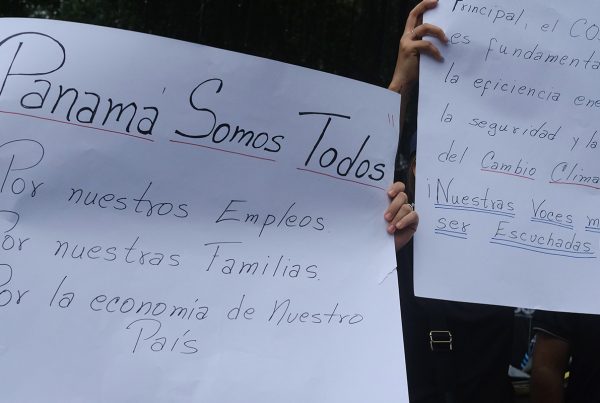 Panamá Somos Todos "
Por nuestros Empleos.
Por nuestras Familias.
Por la economía de Nuestro
País
Principal, el
es
la eficiencia
la seguridad y
del Cambio
¡Nuestras Voces
ser Escuchadas